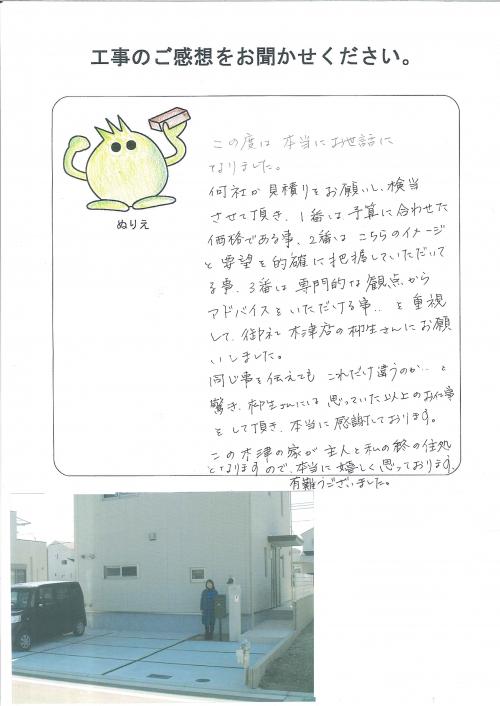 工事のご感想をお聞かせください。
ぬりえ
この度は 本当にお世話に
なりました。
何社か見積りをお願いし、検当
させて頂き、1番は予算に合わせた
価格である事、2番は こちらのイメージ
と要望を的確に把握していただいて
る事、3番は専門的な観点から
アドバイスをいただける事.. を重視
して、御社 木津店の柳生さんにお願
いしました。
同じ事を伝えても これだけ違うのか.. と
驚き、柳生さんには 思っていた以上のお仕事
をして頂き、本当に感謝しております。
この木津の家が 主人と私の終の住処
となりますので、本当に嬉しく思っております。
有難うございました。